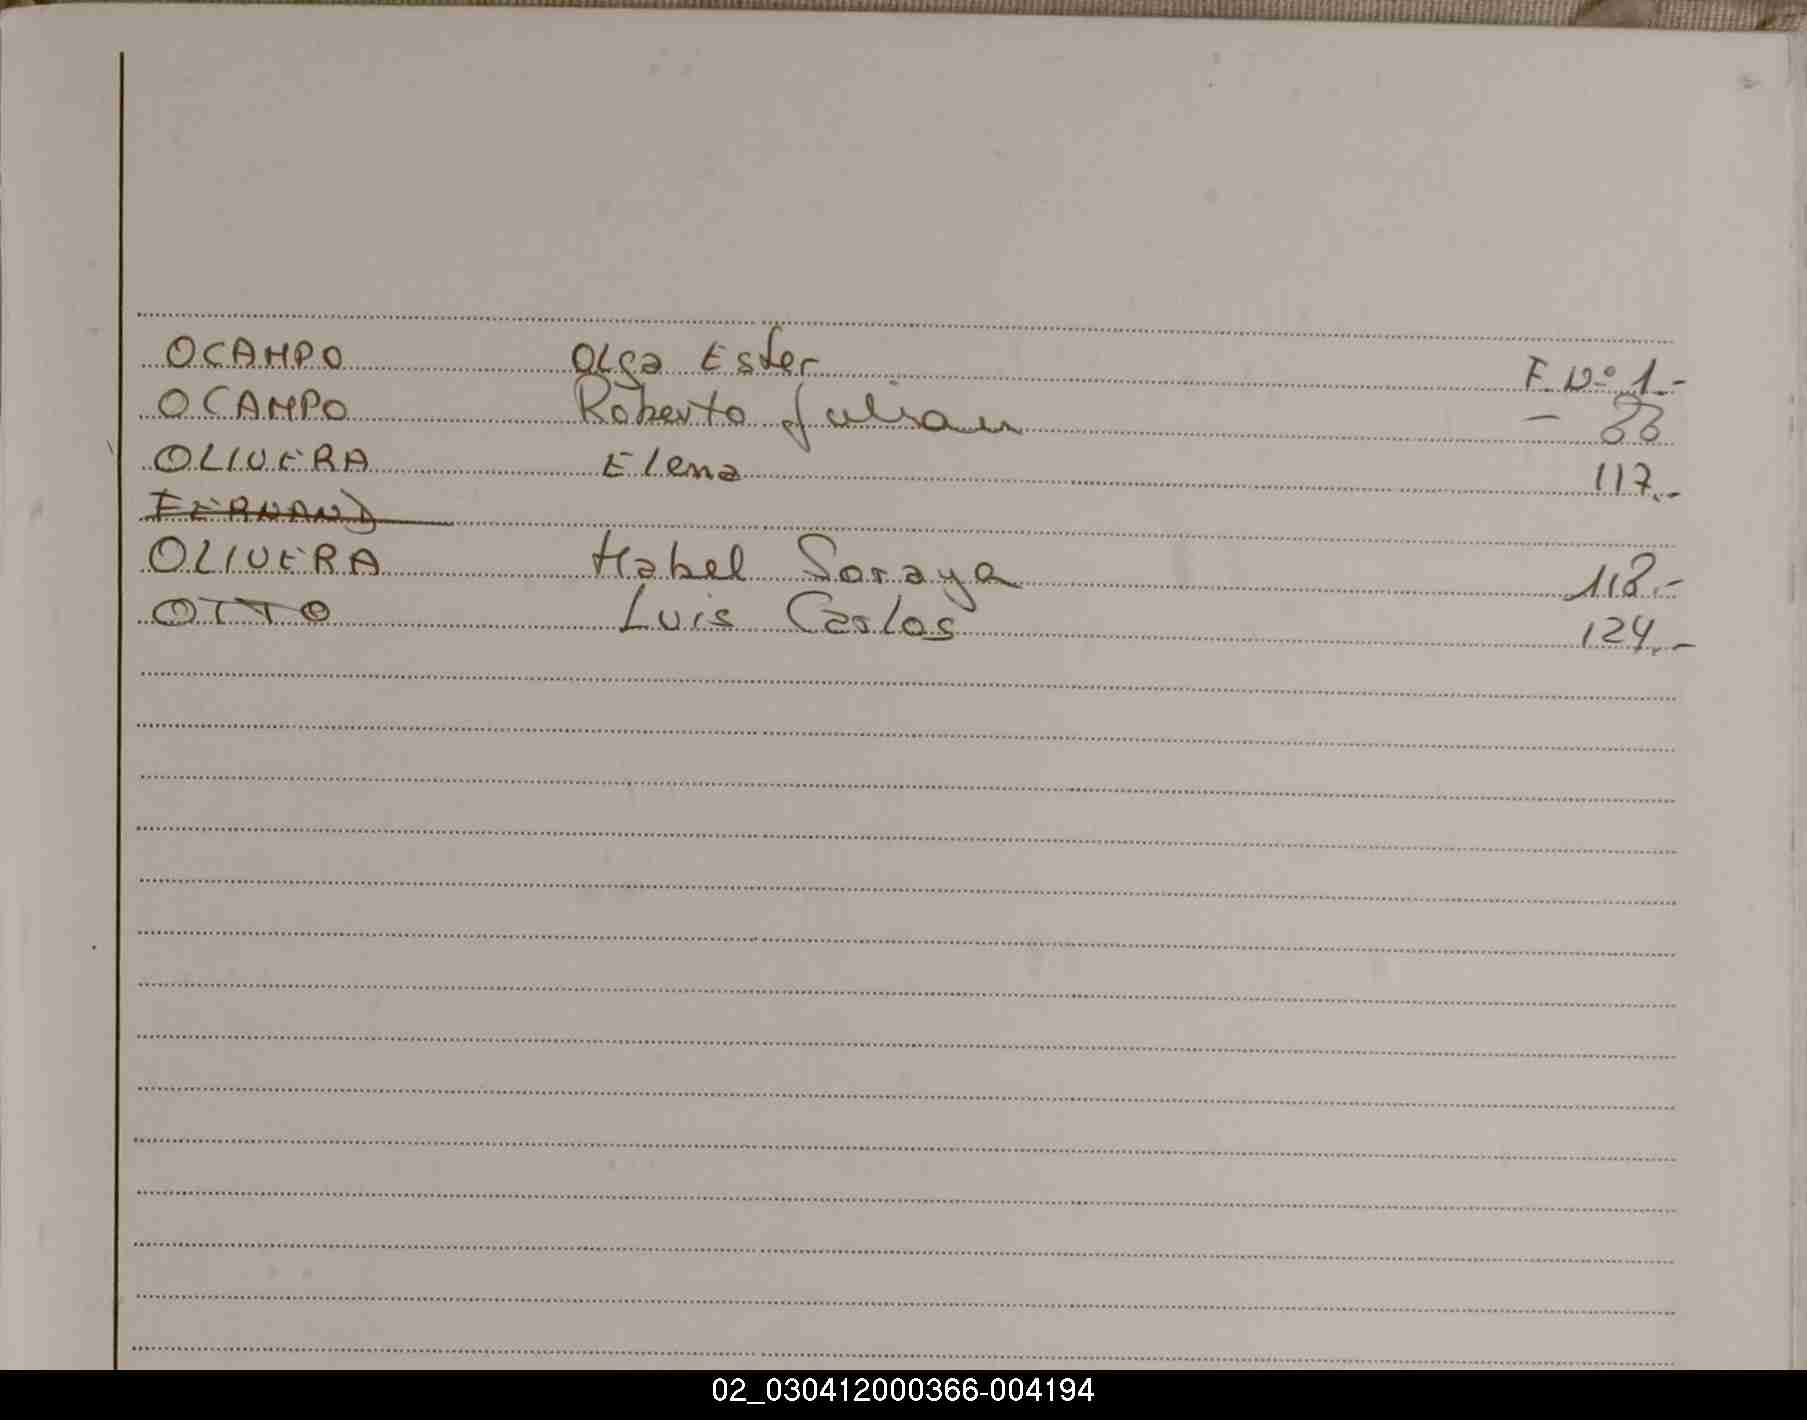 OCAMPO Olga Ester F. Nº 1.-
OCAMPO Roberto Julian - 88
OLIVERA Elena 117.-
FERNAND
OLIVERA Habel Soraya 118.-
OTTO Luis Carlos 124.-
02_030412000366-004194